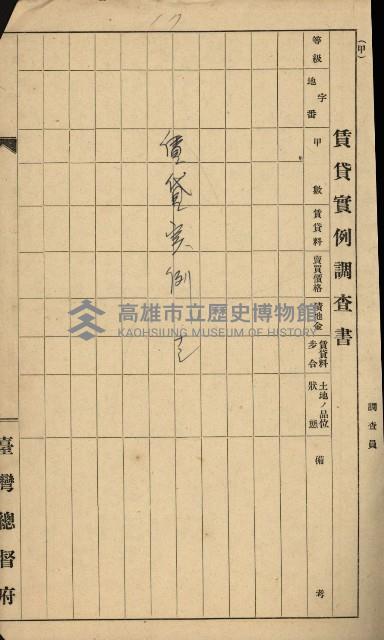 (甲)
賃貸實例調査書
調査員
等級
地字番
甲數
賃貸料
賣買價格
賃貸料步合
土地ノ品位狀態
備考
賃貸実例
高雄市立歷史博物館
KAOHSIUNG MUSEUM OF HISTORY
臺灣總督府